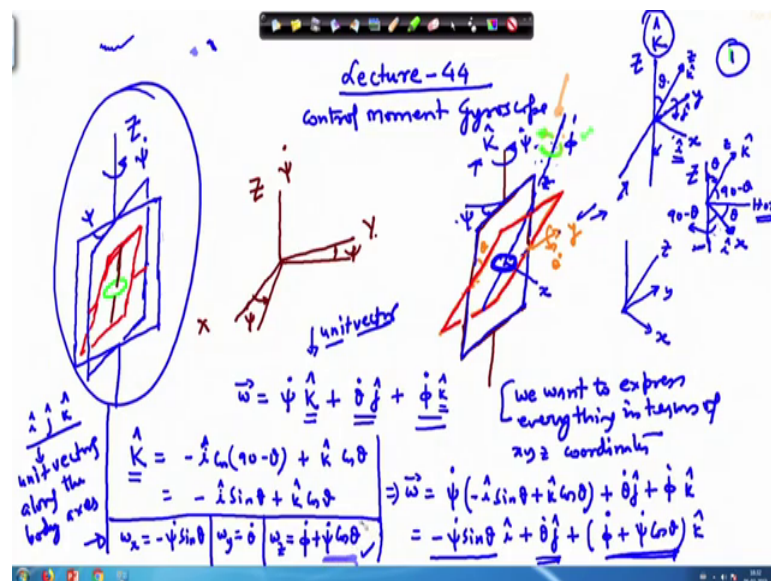 Lecture-44
control moment Gyroscope
1
Z
ψ̇
ψ
Z
ψ̇
Y
ψ
X
ψ
K̂
ψ̇
φ̇
ψ
z
θ
y
θ̇
x
K̂
Z
z
k̂
θ
y
ĵ
x
î
Z
θ
z
k̂
90-θ
90-θ
θ
î
x
z
y
x
unit vector
ω⃗ = ψ̇ K̂ + θ̇ ĵ + φ̇ k̂
[we want to express
everything in terms of
xyz coordinates
î ĵ k̂
unit vectors
along the
body axes
K̂ = -î cos(90-θ) + k̂ cosθ
= -î sinθ + k̂ cosθ
→ ωx = -ψ̇ sinθ | ωy = θ̇ | ωz = φ̇ + ψ̇ cosθ ✓
⇒ ω⃗ = ψ̇ (-î sinθ + k̂ cosθ) + θ̇ ĵ + φ̇ k̂
= -ψ̇ sinθ î + θ̇ ĵ + (φ̇ + ψ̇ cosθ) k̂